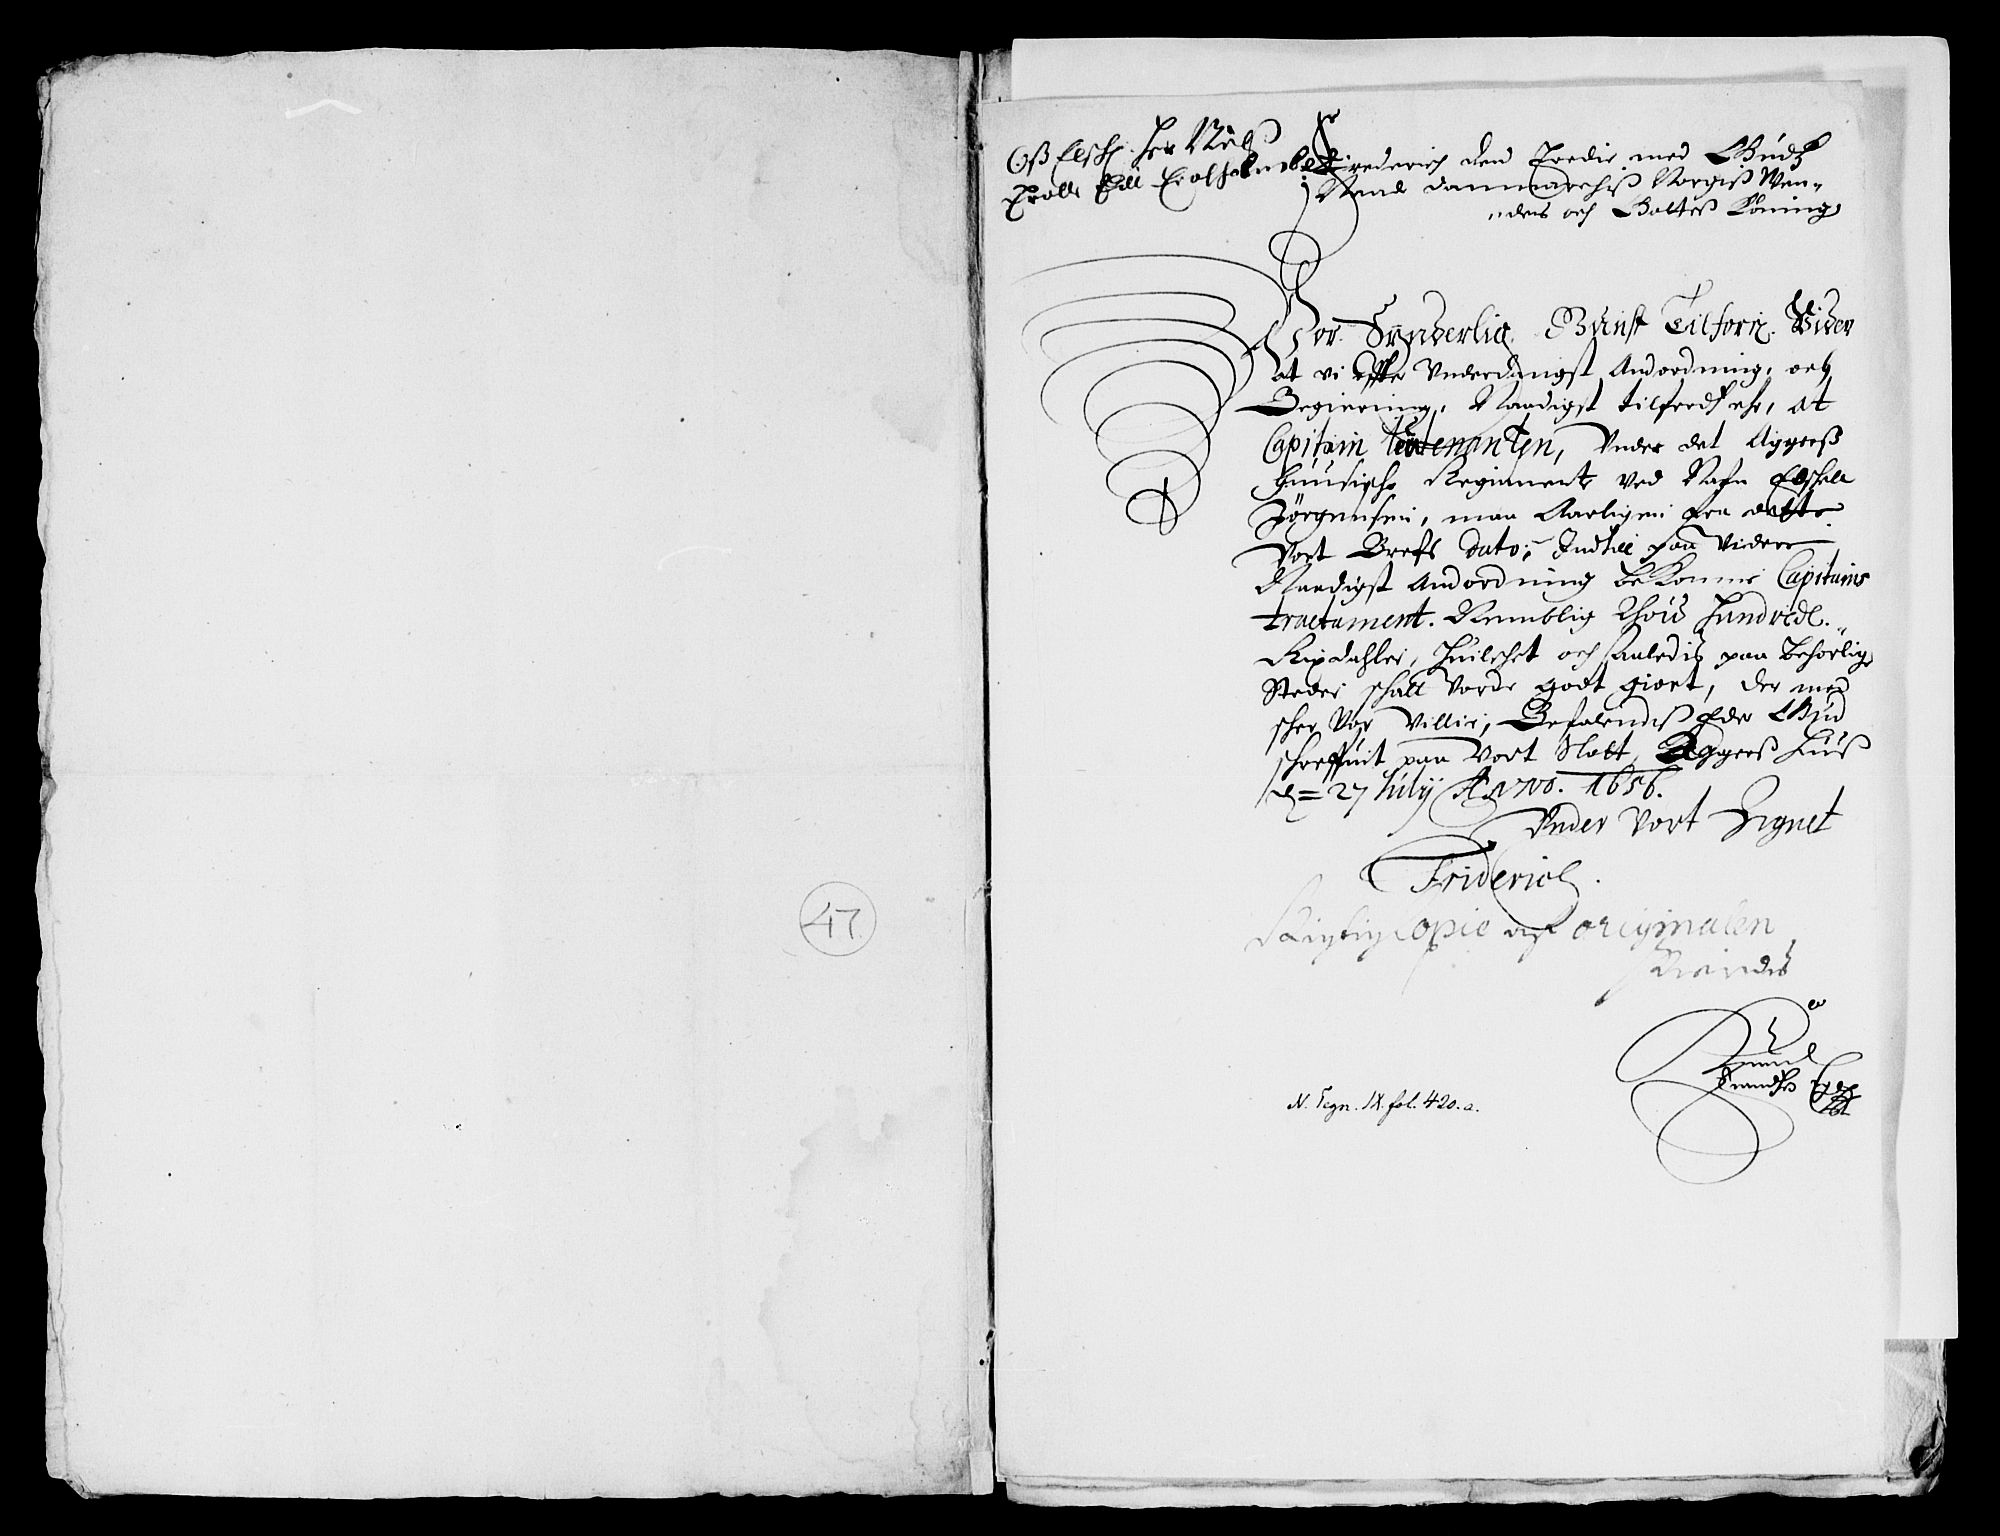 47
Oß Elsch. Her Niels
Trolle till Trolholmb etc.
Frederich dend Tredie med Gudz
Naade Danmarchiß Norgiß Wen-
dens och Gotteß Koning
Vor Synderlig Gunst Tilforn. Vider
at vi effter Vnderdanigst Andordning, och
Begiering, Naadigst tilfredtz ehr, at
Capitain leutenanten, Vnder det Aggerß
huusische Regimente ved Nafn Eschell
Jörgensen, maa Aarligen fra dette
Vort Brefs dato, Indtill paa Videre
Naadigst Andordning bekomme Capitains
tractament. Nemblig Thou Hundrede
Rixdahler, Huilchet och saaledis paa behörlige
Steder schall Vorde godt giort, der med
scher Vor Villie, Befalendis Eder Gud
schreffuit paa Vort Slott, Aggers Huuß
d= 27 July Anno. 1656.
Vnder Vort Zignet
Friderich.
Rigtig Copie aff originalen
N. Tegn. IX. fol. 420. a.